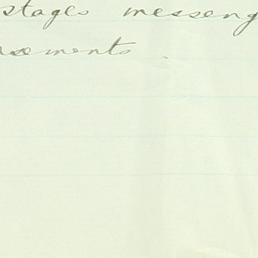 stages messeng
sements.